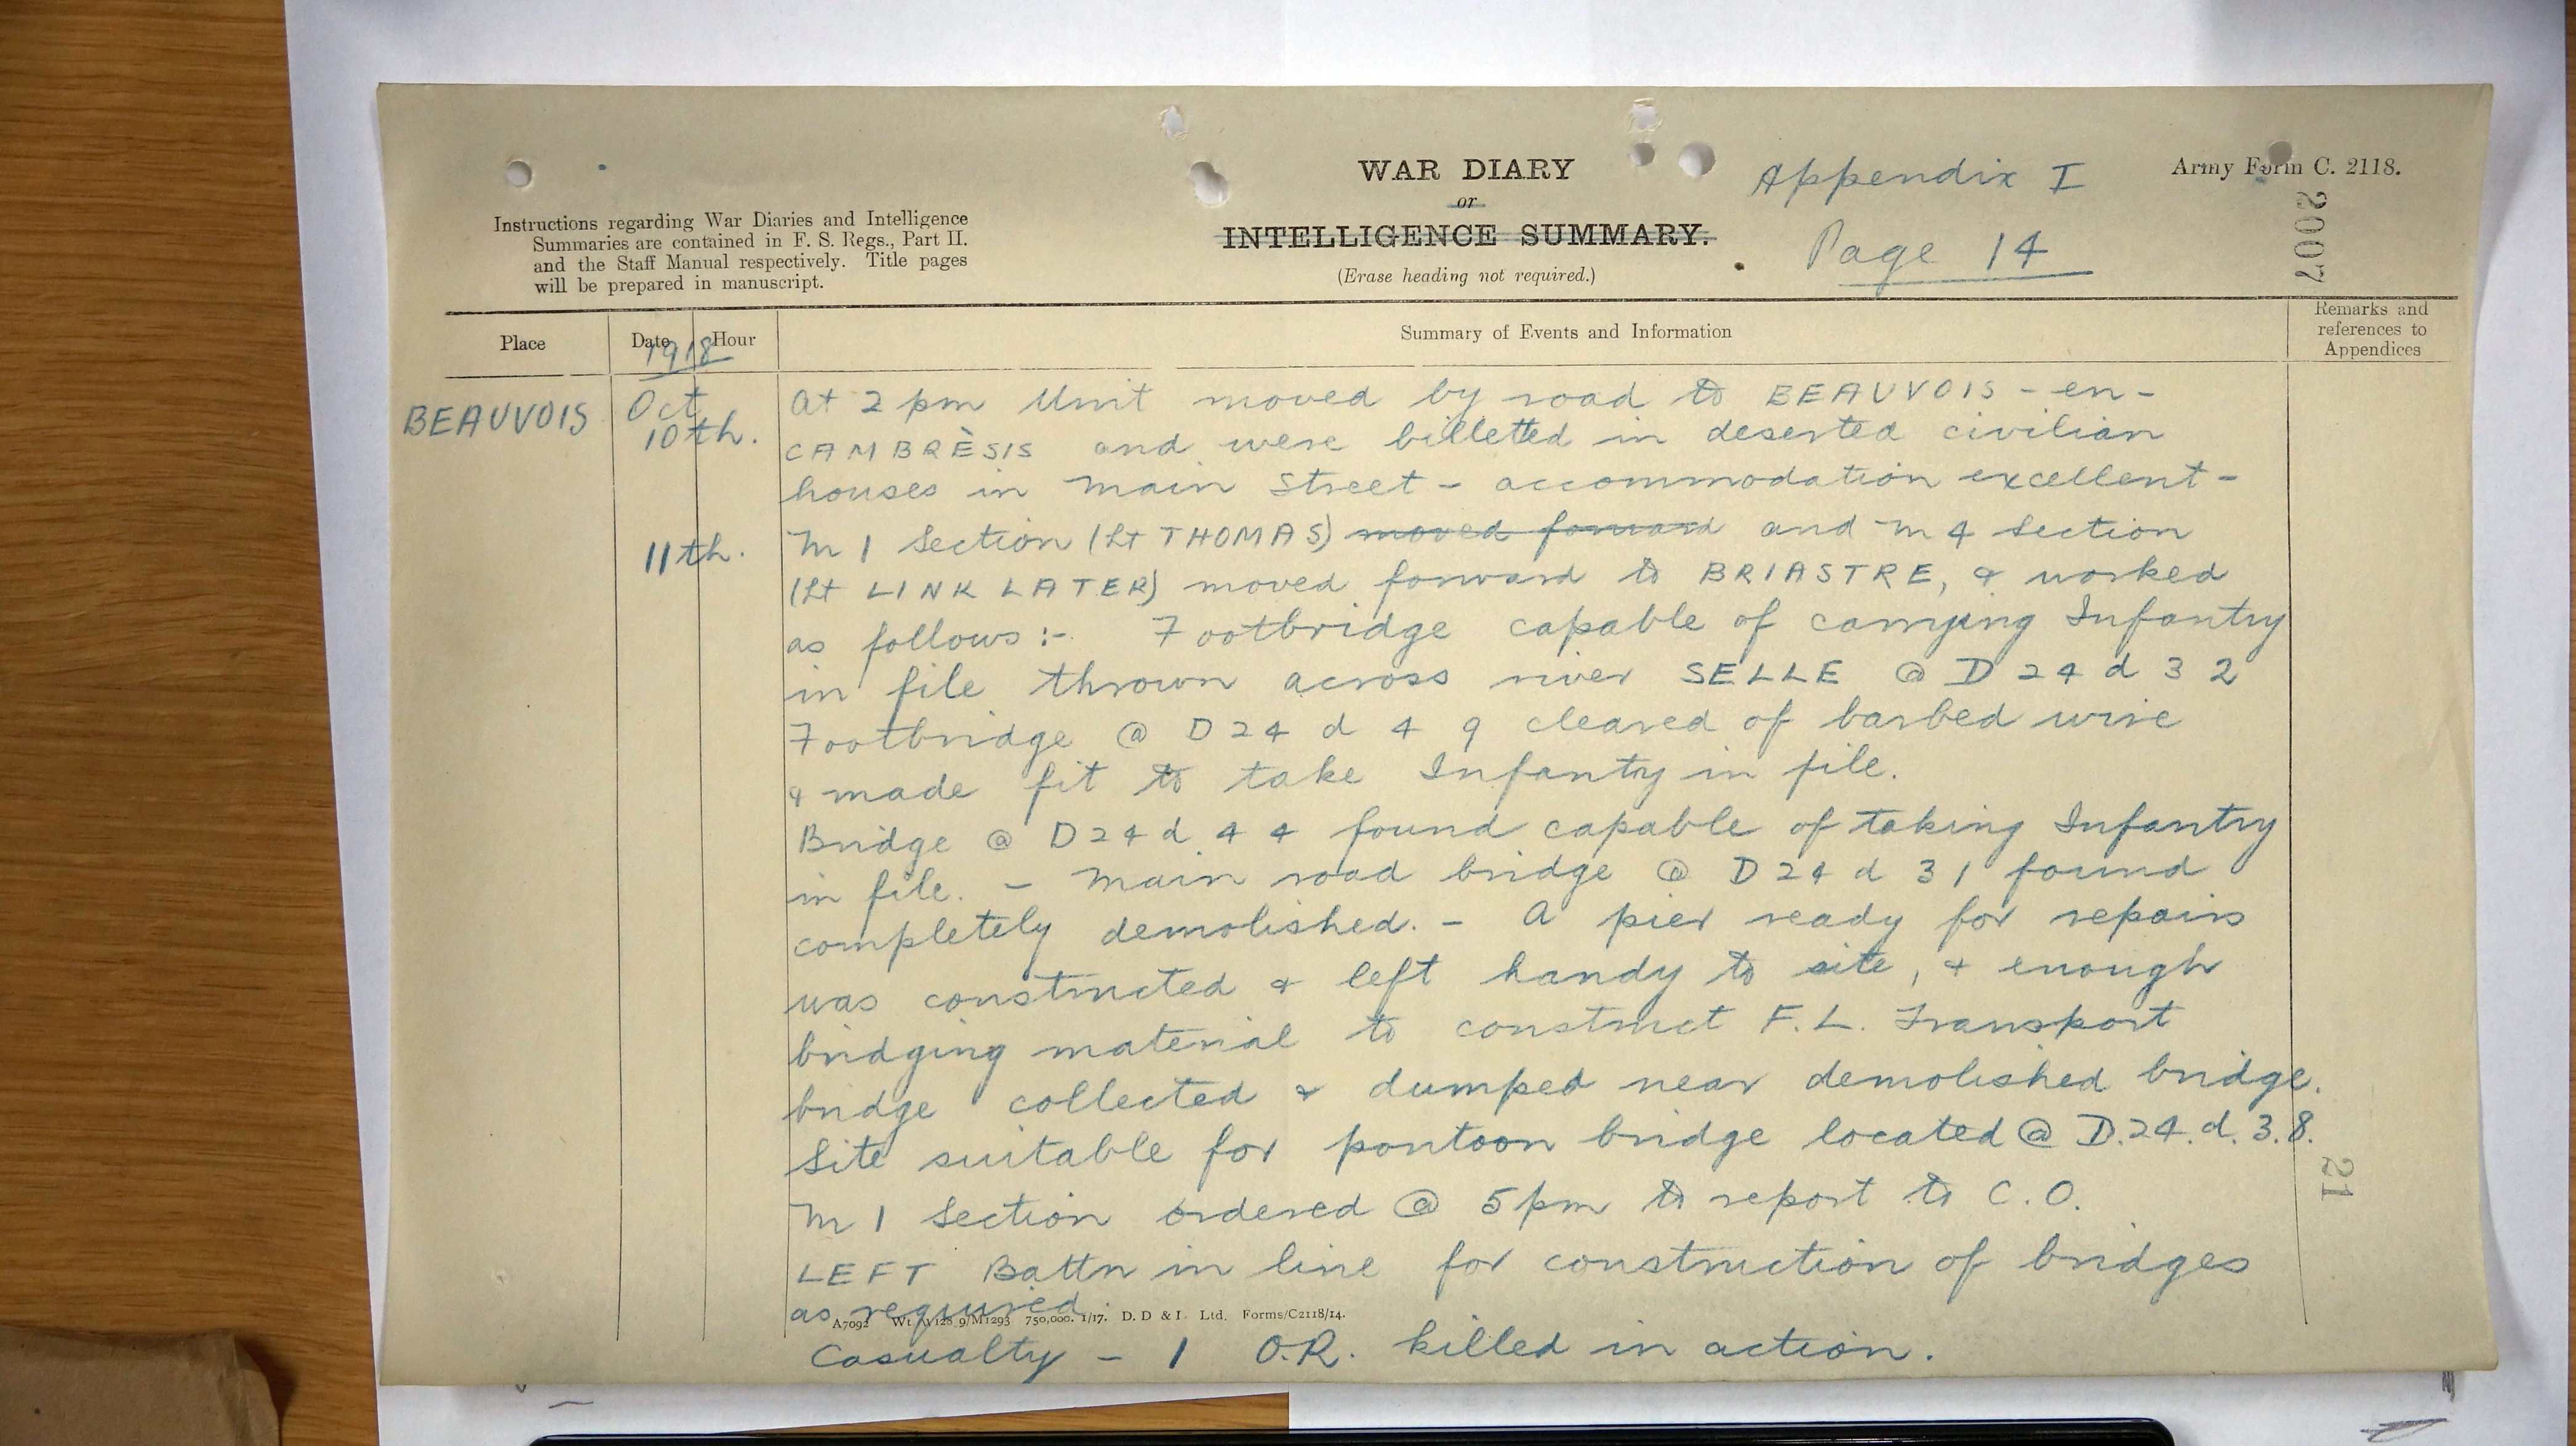 WAR DIARY
or
INTELLIGENCE SUMMARY.
(Erase heading not required.)
Appendix I
Page 14
Army Form C. 2118.
2007
Instructions regarding War Diaries and Intelligence
Summaries are contained in F. S. Regs., Part II.
and the Staff Manual respectively. Title pages
will be prepared in manuscript.
Place
Date
Hour
1918
Summary of Events and Information
Remarks and
references to
Appendices
BEAUVOIS
Oct
10th.
At 2 pm Unit moved by road to BEAUVOIS - en -
CAMBRÈSIS and were billetted in deserted civilian
houses in main street - accommodation excellent -
11th.
No 1 Section (Lt THOMAS) moved forward and No 4 Section
(Lt LINKLATER) moved forward to BRIASTRE, & worked
as follows :- Footbridge capable of carrying Infantry
in file thrown across river SELLE @ D 24 d 3 2
Footbridge @ D 24 d 4 9 cleared of barbed wire
& made fit to take Infantry in file.
Bridge @ D 24 d 4 4 found capable of taking Infantry
in file. - Main road bridge @ D 24 d 3 1 found
completely demolished. - A pier ready for repairs
was constructed & left handy to site, & enough
bridging material to construct F.L. Transport
bridge collected & dumped near demolished bridge.
Site suitable for pontoon bridge located @ D.24.d.3.8.
No 1 Section ordered @ 5 pm to report to C.O.
LEFT Battn in line for construction of bridges
as required.
A7092 Wt. 9/M1293 750,000. 1/17. D. D & L. Ltd. Forms/C2118/14.
Casualty - 1 O.R. killed in action.
21